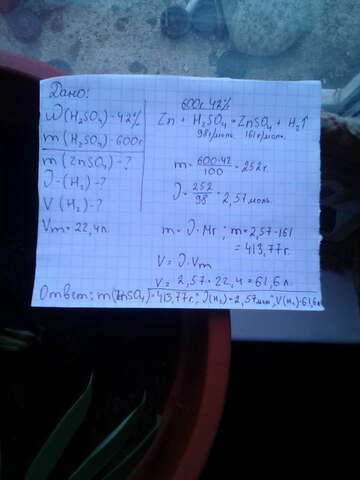 Дано:
W(H₂SO₄)-42%
m(H₂SO₄)-600г
m(ZnSO₄)-?
J-(H₂)-?
V(H₂)-?
Vm=22,4л.
600г. 42%
Zn + H₂SO₄ = ZnSO₄ + H₂↑
98г/моль 161г/моль
m = 600·42/100 = 252г.
J = 252/98 = 2,57моль
m = J·Mr; m = 2,57·161
= 413,77г.
V = J·Vm
V = 2,57·22,4 = 61,6л.
Ответ: m(ZnSO₄)=413,77г; J(H₂)=2,57моль; V(H₂)=61,6л